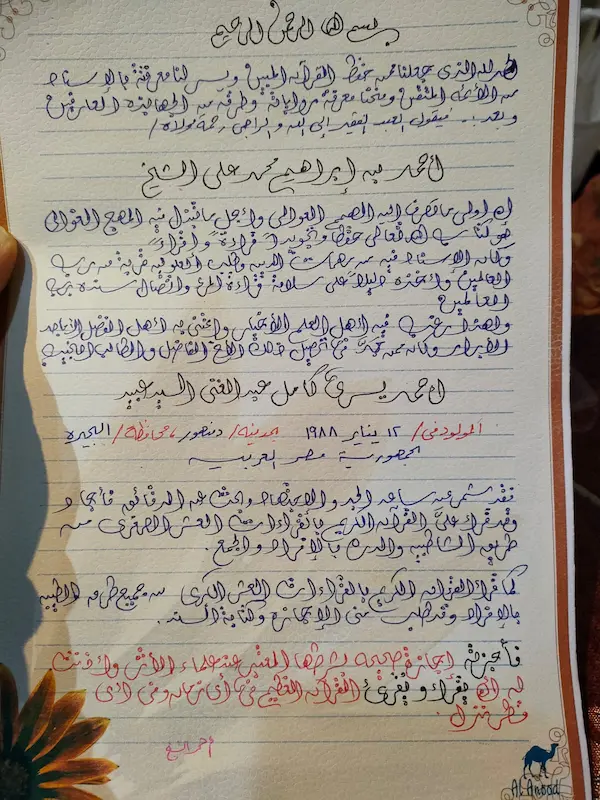 بسم الله الرحمن الرحيم
الحمد لله الذى جعلنا ممن حفظ القرآن المبين ويسر لنا معرفته بالإسناد
من الأئمة المتقنين ومنحنا معرفة رواياته وطرقه من الجهابذة العارفين
وبعد .. فيقول العبد الفقير إلى الله والراجى رحمة مولاه /
أحمد بن إبراهيم محمد على الشيخ
إن أولى ما تصرف إليه الهمم العوالى وأجل ما تبذل فيه المهج الغوالى
هو كتاب الله تعالى حفظا وتجويدا قراءةً وإقراءً
وكان الإسناد فيه من مهمات الدين وطلب العلو فيه قربة من رب
العالمين وأخذه دليلا على سلامة قراءة المرء واتصال سنده برب
العالمين
ولهذا رغب فيه أهل العلم الأخيار واعتنى به أهل الفضل الأماجد
الأبرار وكان ممن جدّ فى تحصيل ذلك الأخ الفاضل والطالب النجيب
أحمد يسرى كامل عبد الغنى السيد عبيد
المولود فى / ١٢ يناير ١٩٨٨ بمدينة / دمنهور ، محافظة / البحيرة
جمهورية مصر العربية
فقد شمر عن ساعد الجد والاجتهاد وبحث عن الدقائق فأجاد
وقد قرأ علىَّ القرآن الكريم بالقراءات العشر الصغرى من
طريق الشاطبية والدرة بالإفراد والجمع .
كما قرأ القرآن الكريم بالقراءات العشر الكبرى من جميع طرق الطيبة
بالإفراد وقد طلب منى الإجازة وكتابة السند .
فأجزته إجازة صحيحة بشرطها المعتبر عند علماء الأثر وأذنت
له أن يقرأ و يُقرئ القرآن العظيم فى أى زمان وفى أى
قطر نزل .
أحمد الشيخ
Al Anood